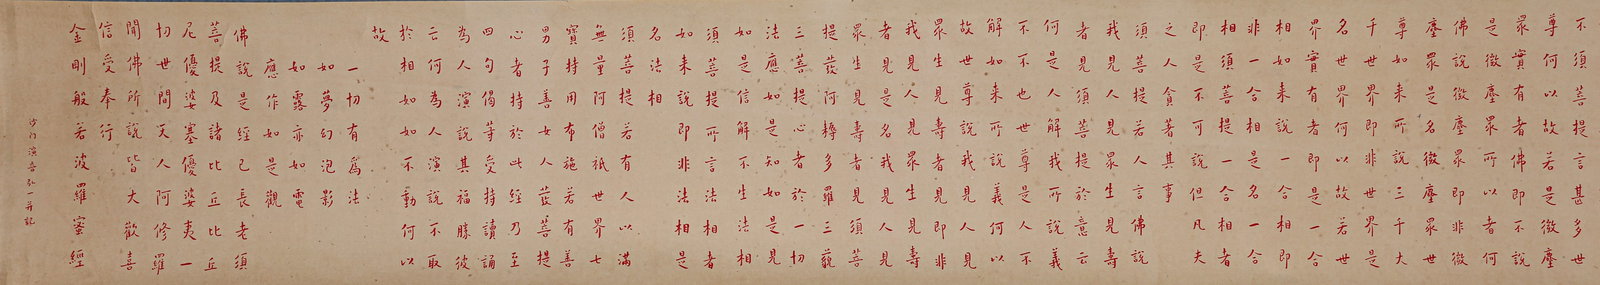 不須菩提言甚多世
尊何以故若是微塵
眾實有者佛即不說
是微塵眾所以者何
佛說微塵眾即非微
塵眾是名微塵眾世
尊如來所說三千大
千世界即非世界是
名世界何以故若世
界實有者即是一合
相如來說一合相即
非一合相是名一合
相須菩提一合相者
即是不可說但凡夫
之人貪著其事
須菩提若人言佛說
我見人見眾生見壽
者見須菩提於意云
何是人解我所說義
不不也世尊是人不
解如來所說義何以
故世尊說我見人見
眾生見壽者見即非
我見人見眾生見壽
者見是名我見人見
眾生見壽者見須菩
提發阿耨多羅三藐
三菩提心者於一切
法應如是知如是見
如是信解不生法相
須菩提所言法相者
如來說即非法相是
名法相
須菩提若有人以滿
無量阿僧祇世界七
寶持用布施若有善
男子善女人發菩提
心者持於此經乃至
四句偈等受持讀誦
為人演說其福勝彼
云何為人演說不取
於相如如不動何以
故
一切有為法
如夢幻泡影
如露亦如電
應作如是觀
佛說是經已長老須
菩提及諸比丘比丘
尼優婆塞優婆夷一
切世間天人阿修羅
聞佛所說皆大歡喜
信受奉行
金剛般若波羅蜜經
沙門演音弘一并記